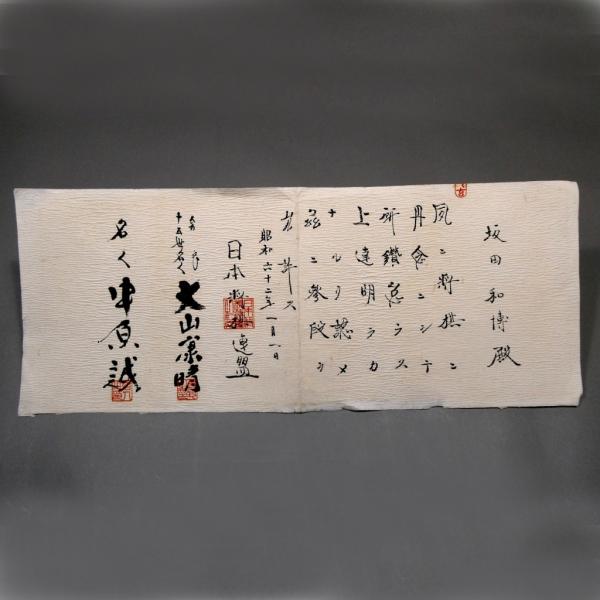 坂田和博殿
夙ニ将棋ニ
丹念ニシテ
研鑽怠ラス
上達明ラカ
ナルヲ認メ
茲ニ参段ヲ
允許ス
昭和六十二年一月一日
日本将棋連盟
会長
十五世名人 大山康晴
名人 中原誠